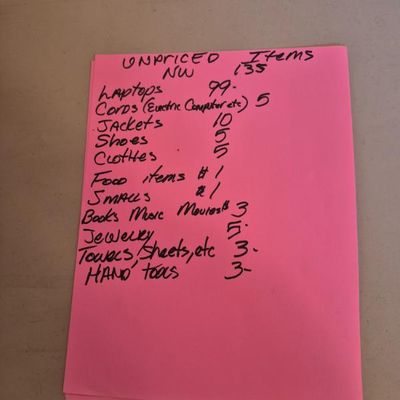 UNPRICED Items
NW 135
Laptops 99-
Cords (Electric Computer etc) 5
Jackets 10
Shoes 5
Clothes 5
Food items $1
Smalls $1
Books Music Movies $3
Jewelry 5-
Towels, Sheets, etc 3-
HAND tools 3-